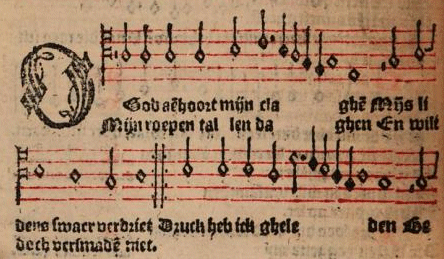 O God aēhoort mijn cla ghē Mijs li
Mijn roepen tal len da ghen En wilt
dens swaer verdriet Druck heb ick ghele den Ge
doch versmadē niet.